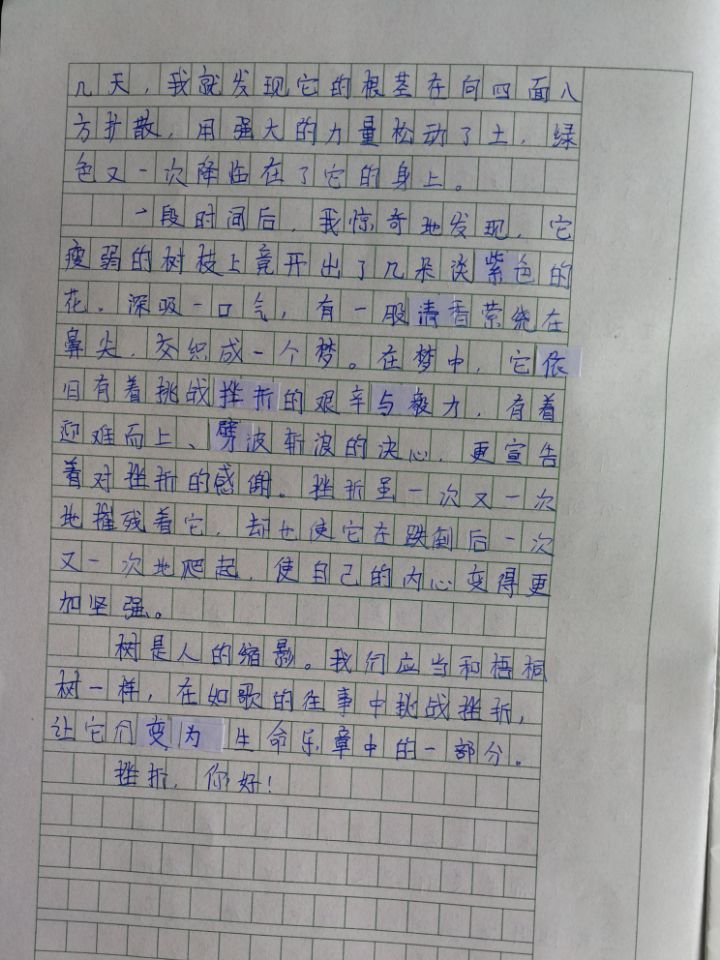 几天，我就发现它的根茎在向四面八
方扩散，用强大的力量松动了土，绿
色又一次降临在了它的身上。
一段时间后，我惊奇地发现，它
瘦弱的树枝上竟开出了几朵淡紫色的
花。深吸一口气，有一股清香萦绕在
鼻尖，交织成一个梦。在梦中，它依
旧有着挑战挫折的艰辛与毅力，有着
迎难而上、劈波斩浪的决心，更宣告
着对挫折的感谢。挫折虽一次又一次
地摧残着它，却也使它在跌倒后一次
又一次地爬起，使自己的内心变得更
加坚强。
树是人的缩影。我们应当和梧桐
树一样，在如歌的往事中挑战挫折，
让它们变为生命乐章中的一部分。
挫折，你好！